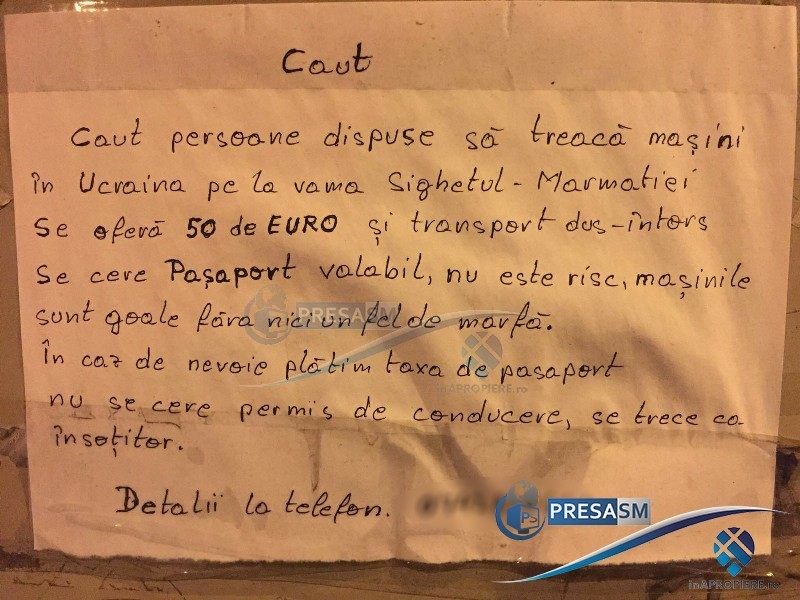 Caut
Caut persoane dispuse să treacă mașini
în Ucraina pe la vama Sighetul - Marmatiei
Se oferă 50 de EURO și transport dus-întors
Se cere Pașaport valabil, nu este risc, mașinile
sunt goale făra nici un fel de marfă.
PRESASM
În caz de nevoie plătim taxa de pasaport
inAPROPIERE.ro
nu se cere permis de conducere, se trece ca
însoțitor.
Detalii la telefon.
PRESASM
inAPROPIERE.ro